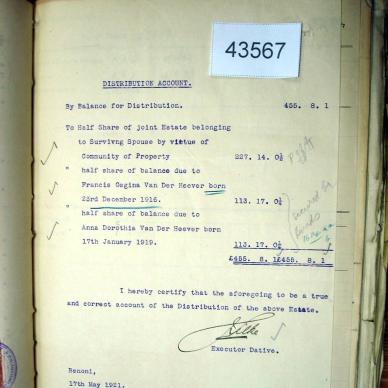 43567
DISTRIBUTION ACCOUNT.
By Balance for Distribution. 455. 8. 1
To Half Share of joint Estate belonging
to Survivng Spouse by virtue of
Community of Property 227. 14. 0½
" half share of balance due to
Francis Gegina Van Der Heever born
23rd December 1916. 113. 17. 0¼
" half share of balance due to
Anna Dorothia Van Der Heever born
17th January 1919. 113. 17. 0¼
£455. 8. 1£455. 8. 1
I hereby certify that the aforegoing to be a true
and correct account of the Distribution of the above Estate.
Executor Dative.
Benoni,
17th May 1921.